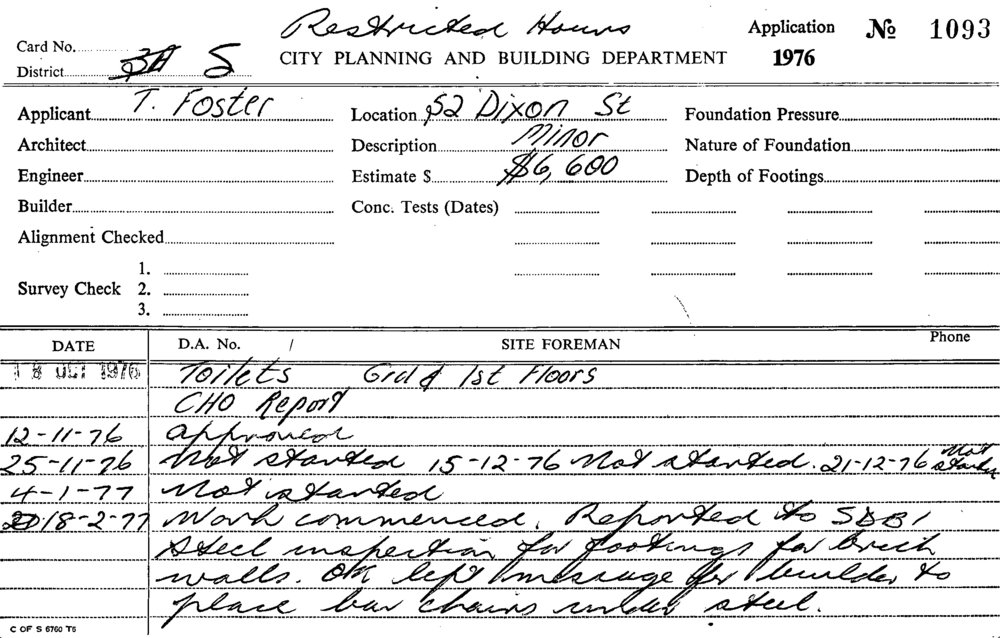 Restricted Hours
Application № 1093
Card No.
CITY PLANNING AND BUILDING DEPARTMENT 1976
District S
Applicant T. Foster Location 52 Dixon St Foundation Pressure
Architect Description Minor Nature of Foundation
Engineer Estimate $ $6,600 Depth of Footings
Builder Conc. Tests (Dates)
Alignment Checked
1.
Survey Check 2.
3.
DATE D.A. No. / SITE FOREMAN Phone
18 OCT 1976 Toilets Grd & 1st Floors
CHO Report
12-11-76 approved
25-11-76 Not started 15-12-76 Not started. 21-12-76 Not started
4-1-77 Not started
18-2-77 Work commenced. Reported to SDBI
Steel inspection for footings for brick
walls. OK left message for builder to
place bar chairs under steel.
C OF S 6760 T5